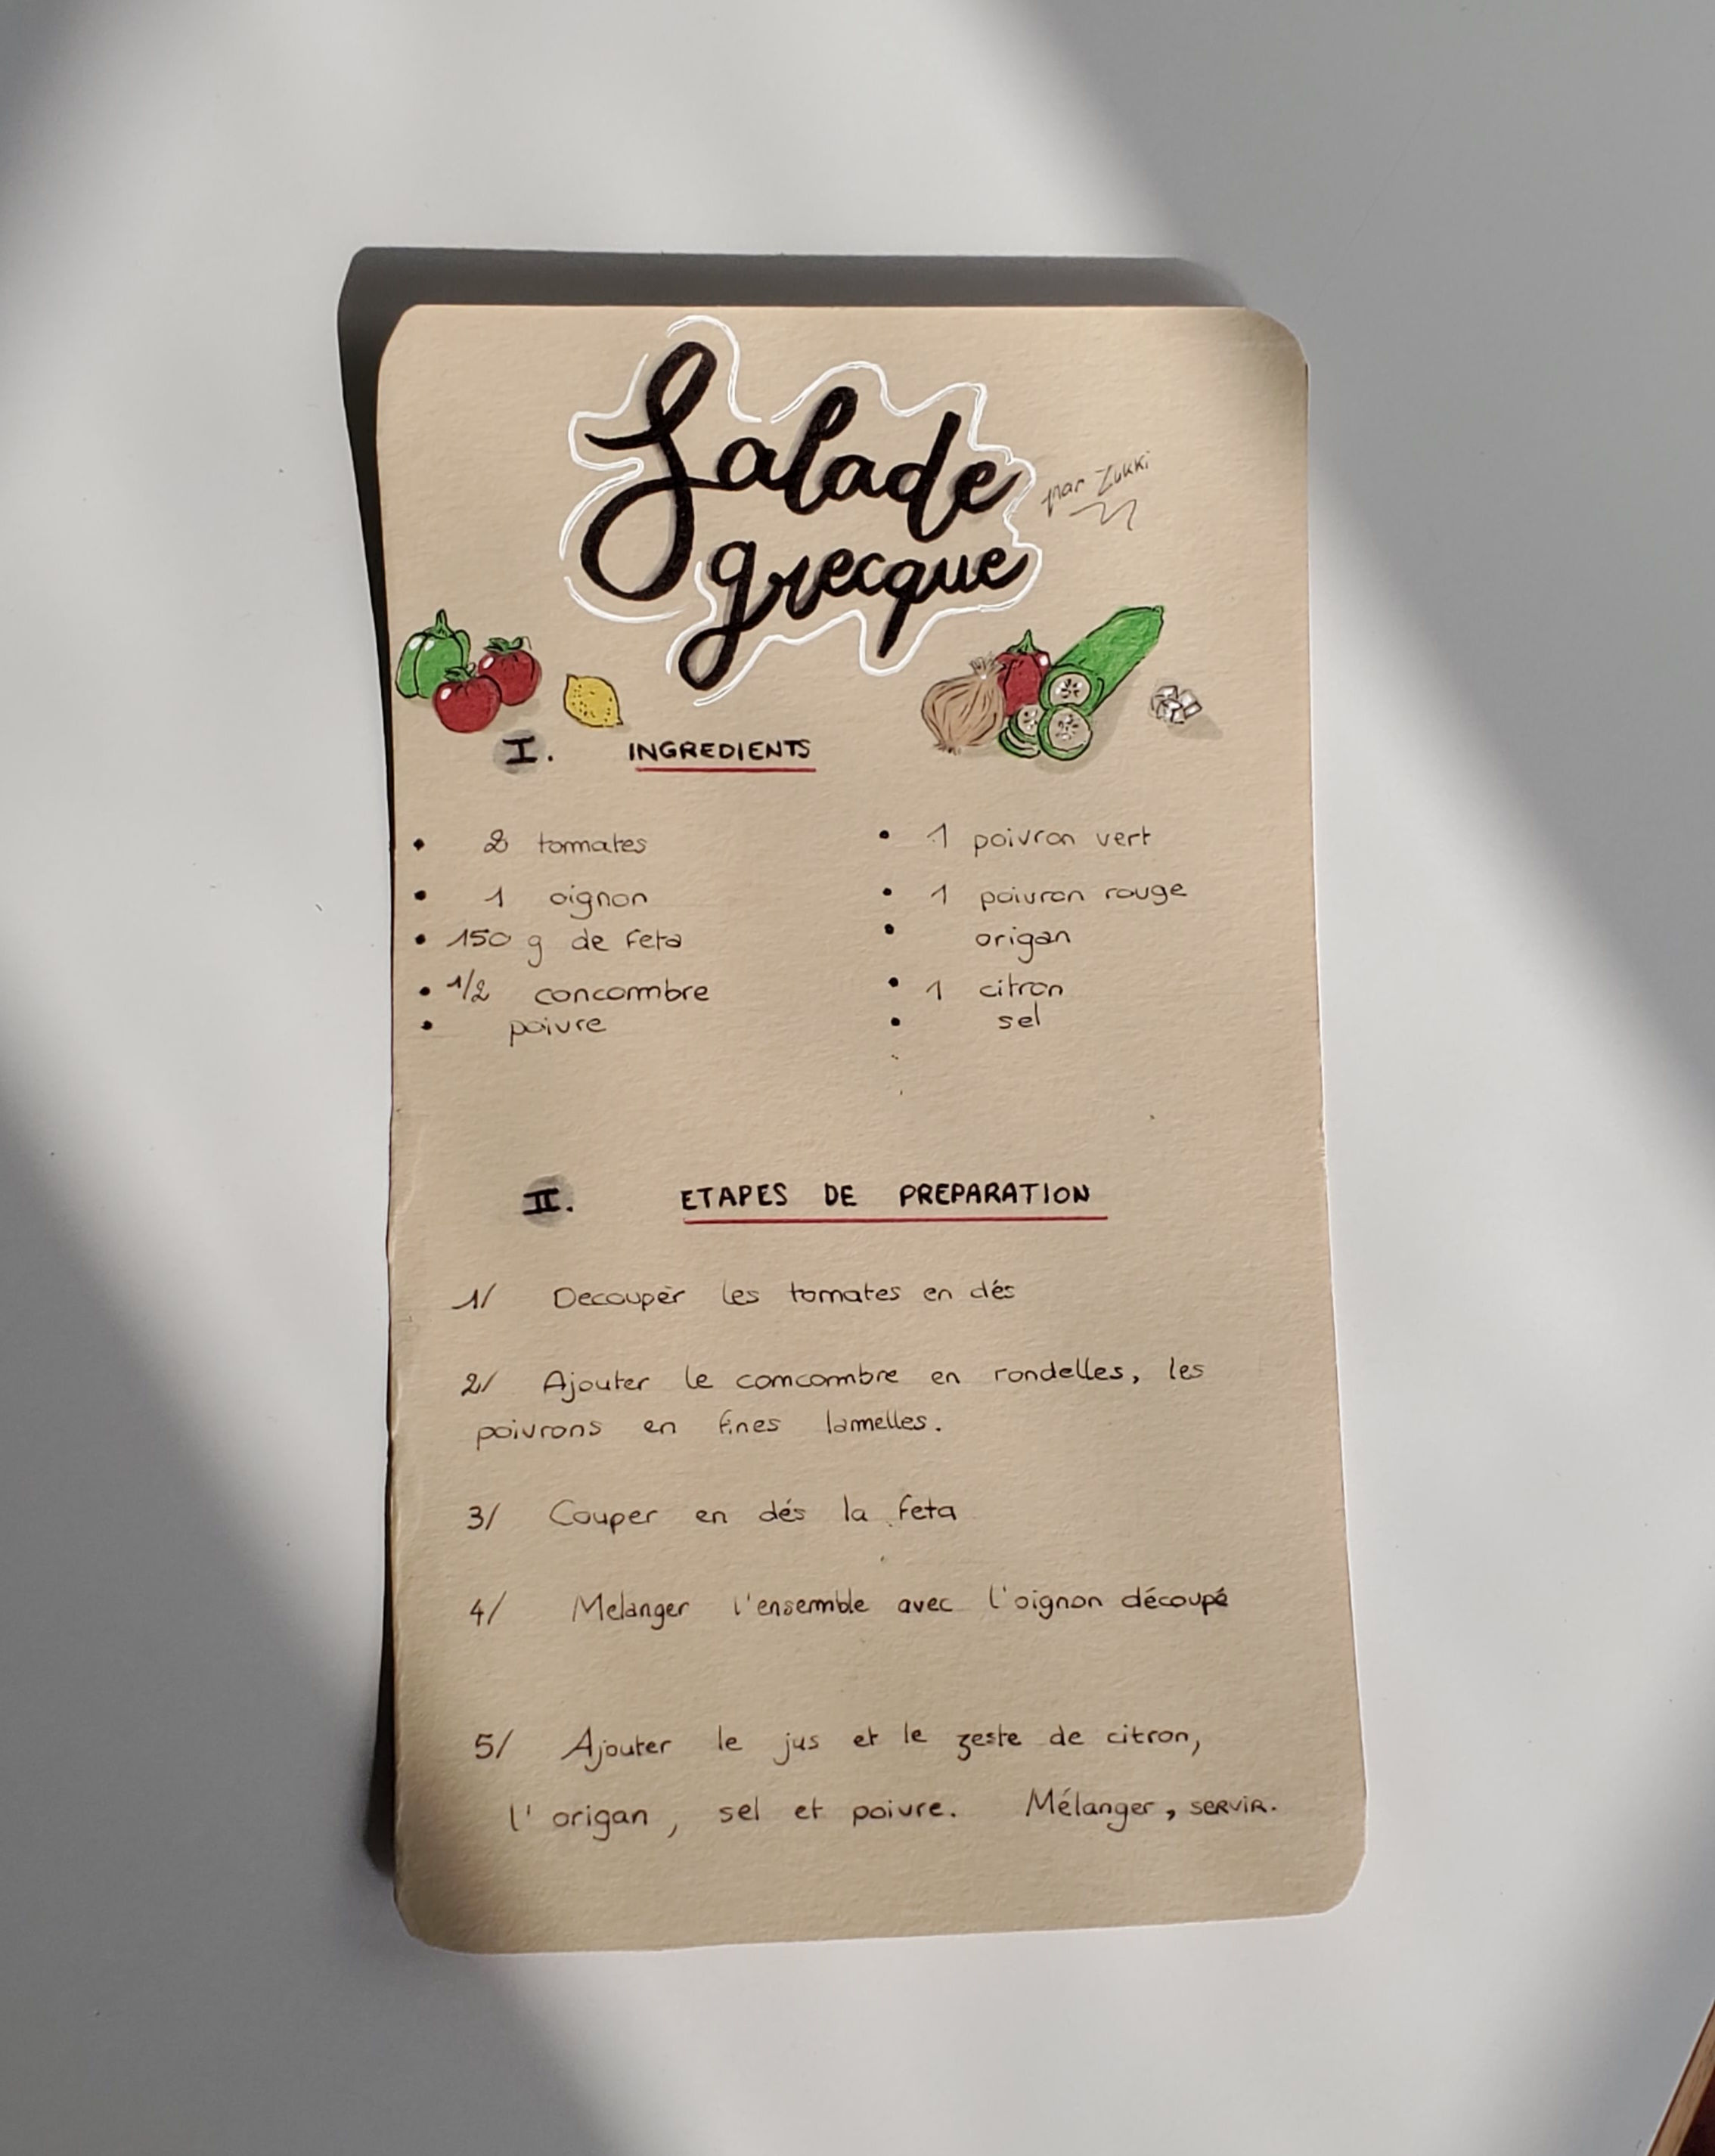 Salade
grecque
par Zukki
I. INGREDIENTS
• 2 tomates
• 1 oignon
• 150 g de feta
• 1/2 concombre
• poivre
• 1 poivron vert
• 1 poivron rouge
• origan
• 1 citron
• sel
II. ETAPES DE PREPARATION
1/ Decoupèr les tomates en dés
2/ Ajouter le comcombre en rondelles, les
poivrons en fines lamelles.
3/ Couper en dés la feta
4/ Melanger l'ensemble avec l'oignon découpé
5/ Ajouter le jus et le zeste de citron,
l'origan, sel et poivre. Mélanger, SERVIR.